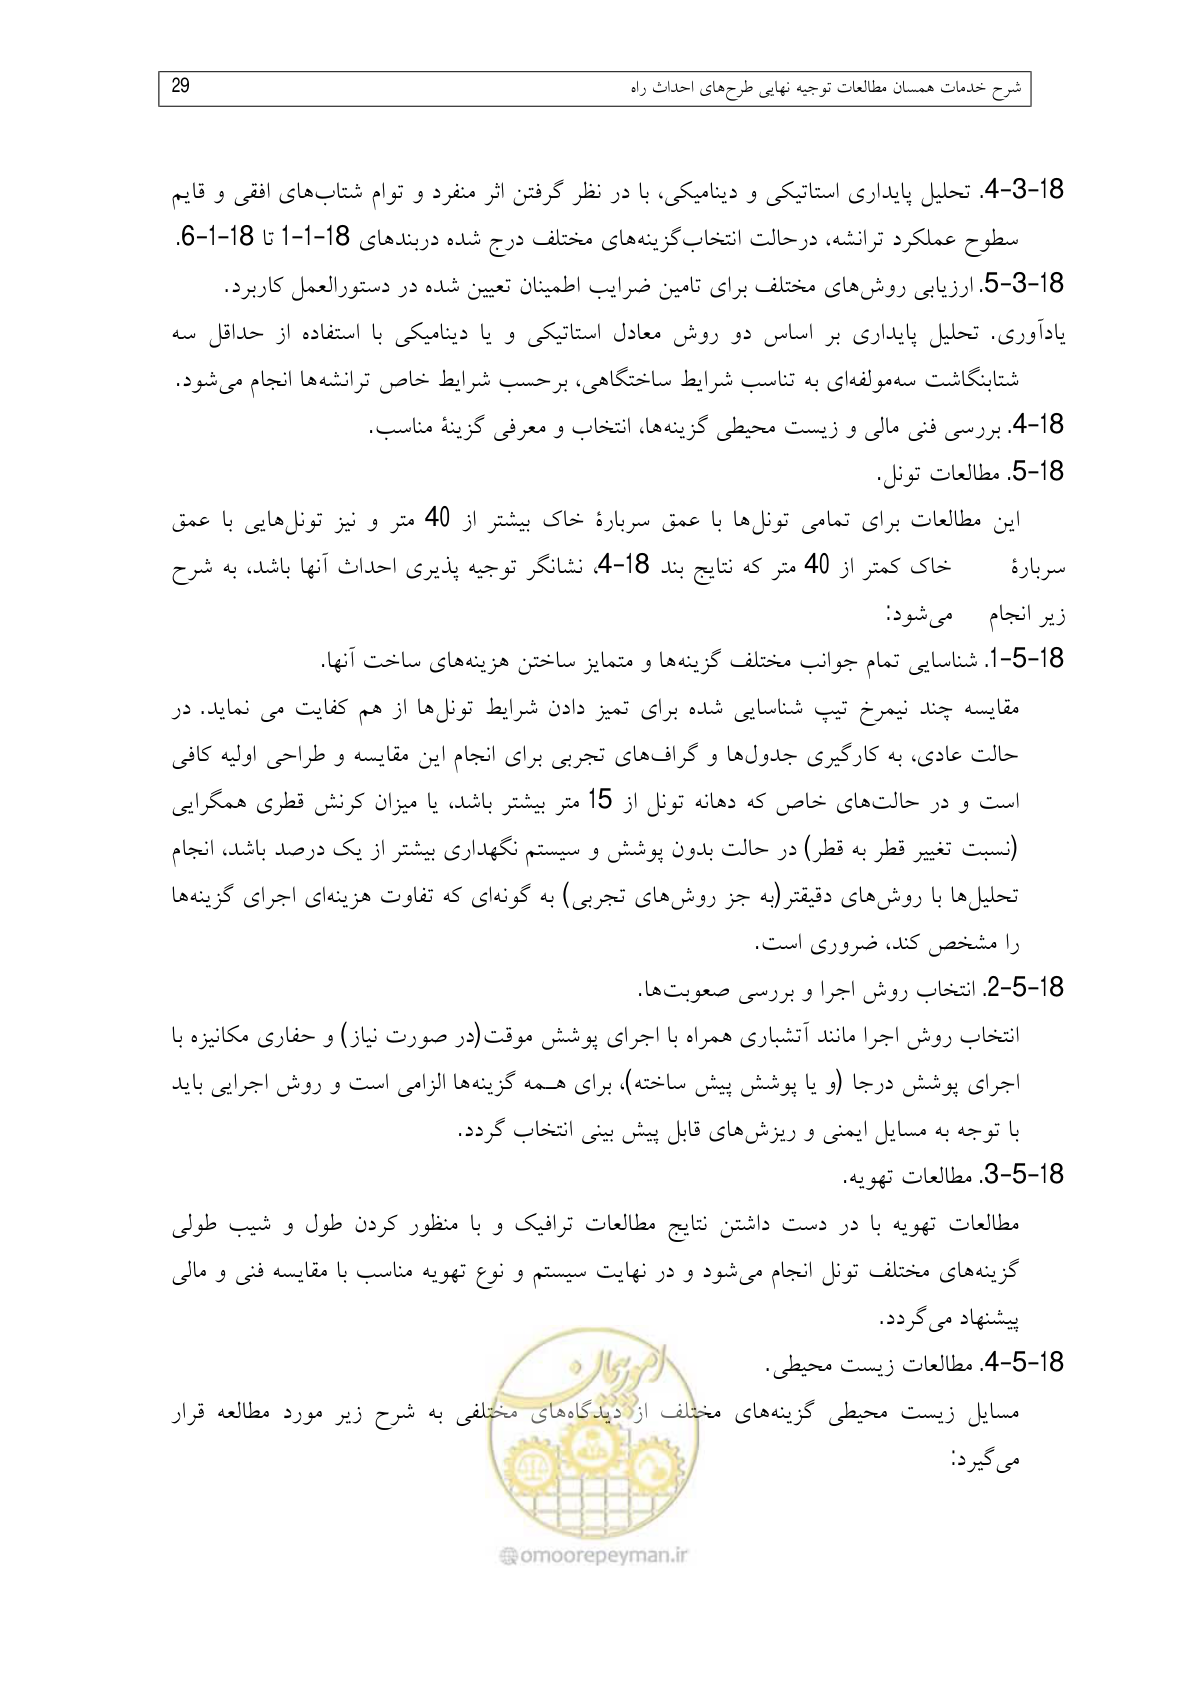 شرح خدمات همسان مطالعات توجیه نهایی طرح‌های احداث راه 29
4-3-18. تحلیل پایداری استاتیکی و دینامیکی، با در نظر گرفتن اثر منفرد و توام شتاب‌های افقی و قایم
سطوح عملکرد ترانشه، درحالت انتخاب‌گزینه‌های مختلف درج شده دربندهای 18-1-1 تا 18-1-6.
5-3-18. ارزیابی روش‌های مختلف برای تامین ضرایب اطمینان تعیین شده در دستورالعمل کاربرد.
یادآوری. تحلیل پایداری بر اساس دو روش معادل استاتیکی و یا دینامیکی با استفاده از حداقل سه
شتابنگاشت سه‌مولفه‌ای به تناسب شرایط ساختگاهی، برحسب شرایط خاص ترانشه‌ها انجام می‌شود.
4-18. بررسی فنی مالی و زیست محیطی گزینه‌ها، انتخاب و معرفی گزینۀ مناسب.
5-18. مطالعات تونل.
این مطالعات برای تمامی تونل‌ها با عمق سربارۀ خاک بیشتر از 40 متر و نیز تونل‌هایی با عمق
سربارۀ خاک کمتر از 40 متر که نتایج بند 18-4، نشانگر توجیه پذیری احداث آنها باشد، به شرح
زیر انجام می‌شود:
1-5-18. شناسایی تمام جوانب مختلف گزینه‌ها و متمایز ساختن هزینه‌های ساخت آنها.
مقایسه چند نیمرخ تیپ شناسایی شده برای تمیز دادن شرایط تونل‌ها از هم کفایت می نماید. در
حالت عادی، به کارگیری جدول‌ها و گراف‌های تجربی برای انجام این مقایسه و طراحی اولیه کافی
است و در حالت‌های خاص که دهانه تونل از 15 متر بیشتر باشد، یا میزان کرنش قطری همگرایی
(نسبت تغییر قطر به قطر) در حالت بدون پوشش و سیستم نگهداری بیشتر از یک درصد باشد، انجام
تحلیل‌ها با روش‌های دقیقتر(به جز روش‌های تجربی) به گونه‌ای که تفاوت هزینه‌ای اجرای گزینه‌ها
را مشخص کند، ضروری است.
2-5-18. انتخاب روش اجرا و بررسی صعوبت‌ها.
انتخاب روش اجرا مانند آتشباری همراه با اجرای پوشش موقت(در صورت نیاز) و حفاری مکانیزه با
اجرای پوشش درجا (و یا پوشش پیش ساخته)، برای هـمه گزینه‌ها الزامی است و روش اجرایی باید
با توجه به مسایل ایمنی و ریزش‌های قابل پیش بینی انتخاب گردد.
3-5-18. مطالعات تهویه.
مطالعات تهویه با در دست داشتن نتایج مطالعات ترافیک و با منظور کردن طول و شیب طولی
گزینه‌های مختلف تونل انجام می‌شود و در نهایت سیستم و نوع تهویه مناسب با مقایسه فنی و مالی
پیشنهاد می‌گردد.
4-5-18. مطالعات زیست محیطی.
مسایل زیست محیطی گزینه‌های مختلف از دیدگاه‌های مختلفی به شرح زیر مورد مطالعه قرار
می‌گیرد:
امور پیمان
omoorepeyman.ir